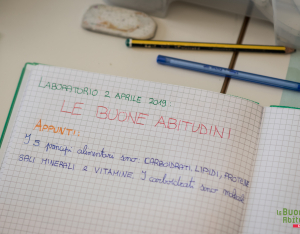 LABORATORIO 2 APRILE 2019
LE BUONE ABITUDINI
APPUNTI:
I 5 principi alimentari sono CARBOIDRATI, LIPIDI, PROTEINE
SALI MINERALI E VITAMINE. I carboidrati sono
le BUONE
ABIT